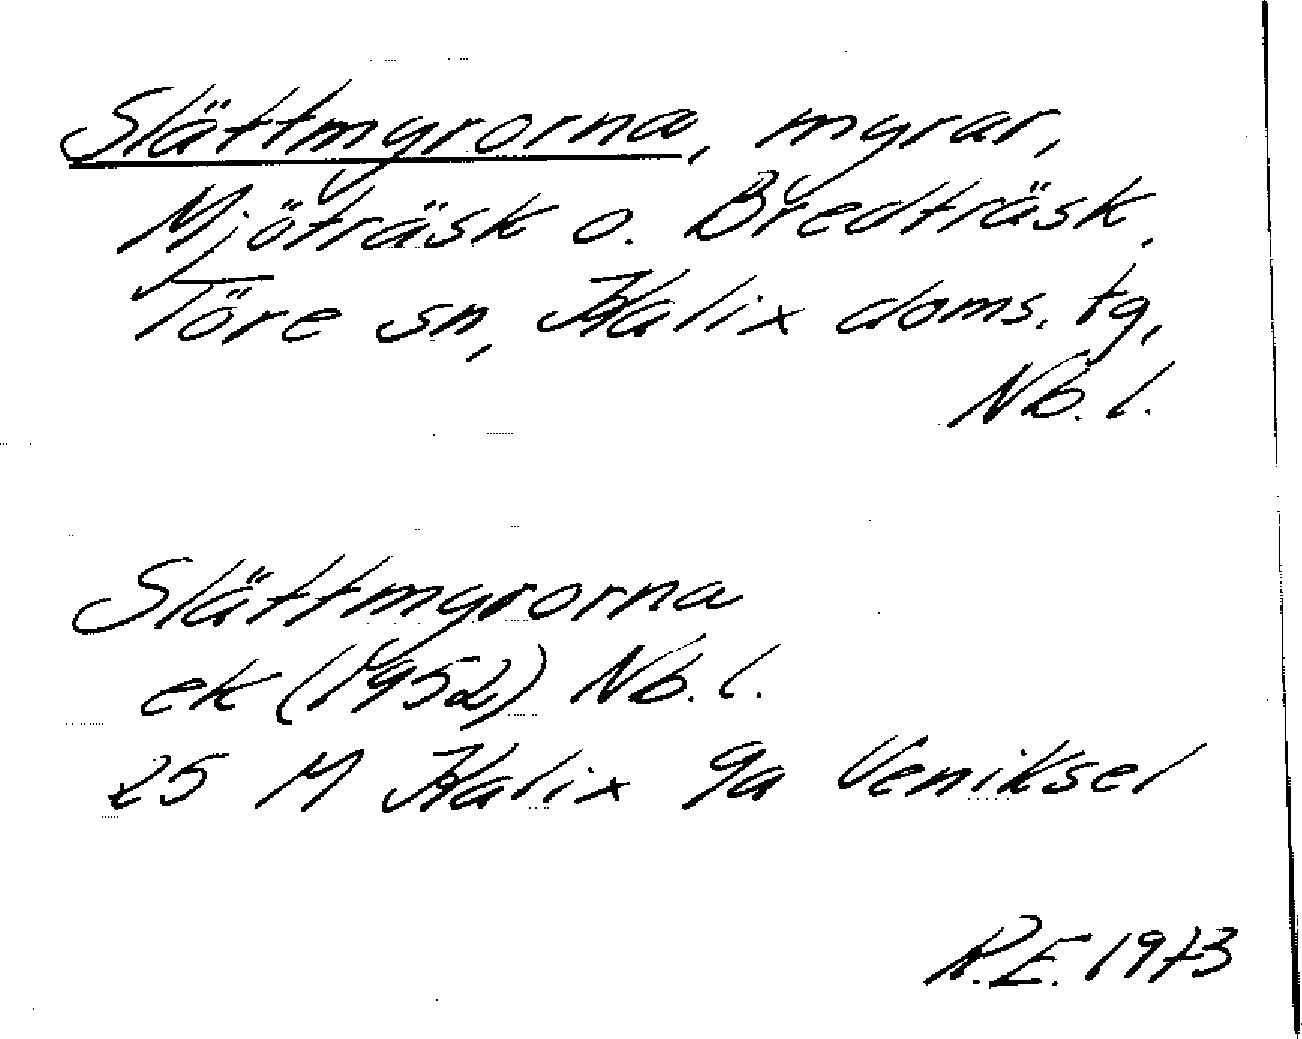 Slättmyrorna, myrar,
Mjöträsk o. Bredträsk,
Töre sn, Kalix doms. tg,
Nb. l.
Slättmyrorna
ek (1952) Nb. l.
25 M Kalix 9a Veniksel
R.E. 1973